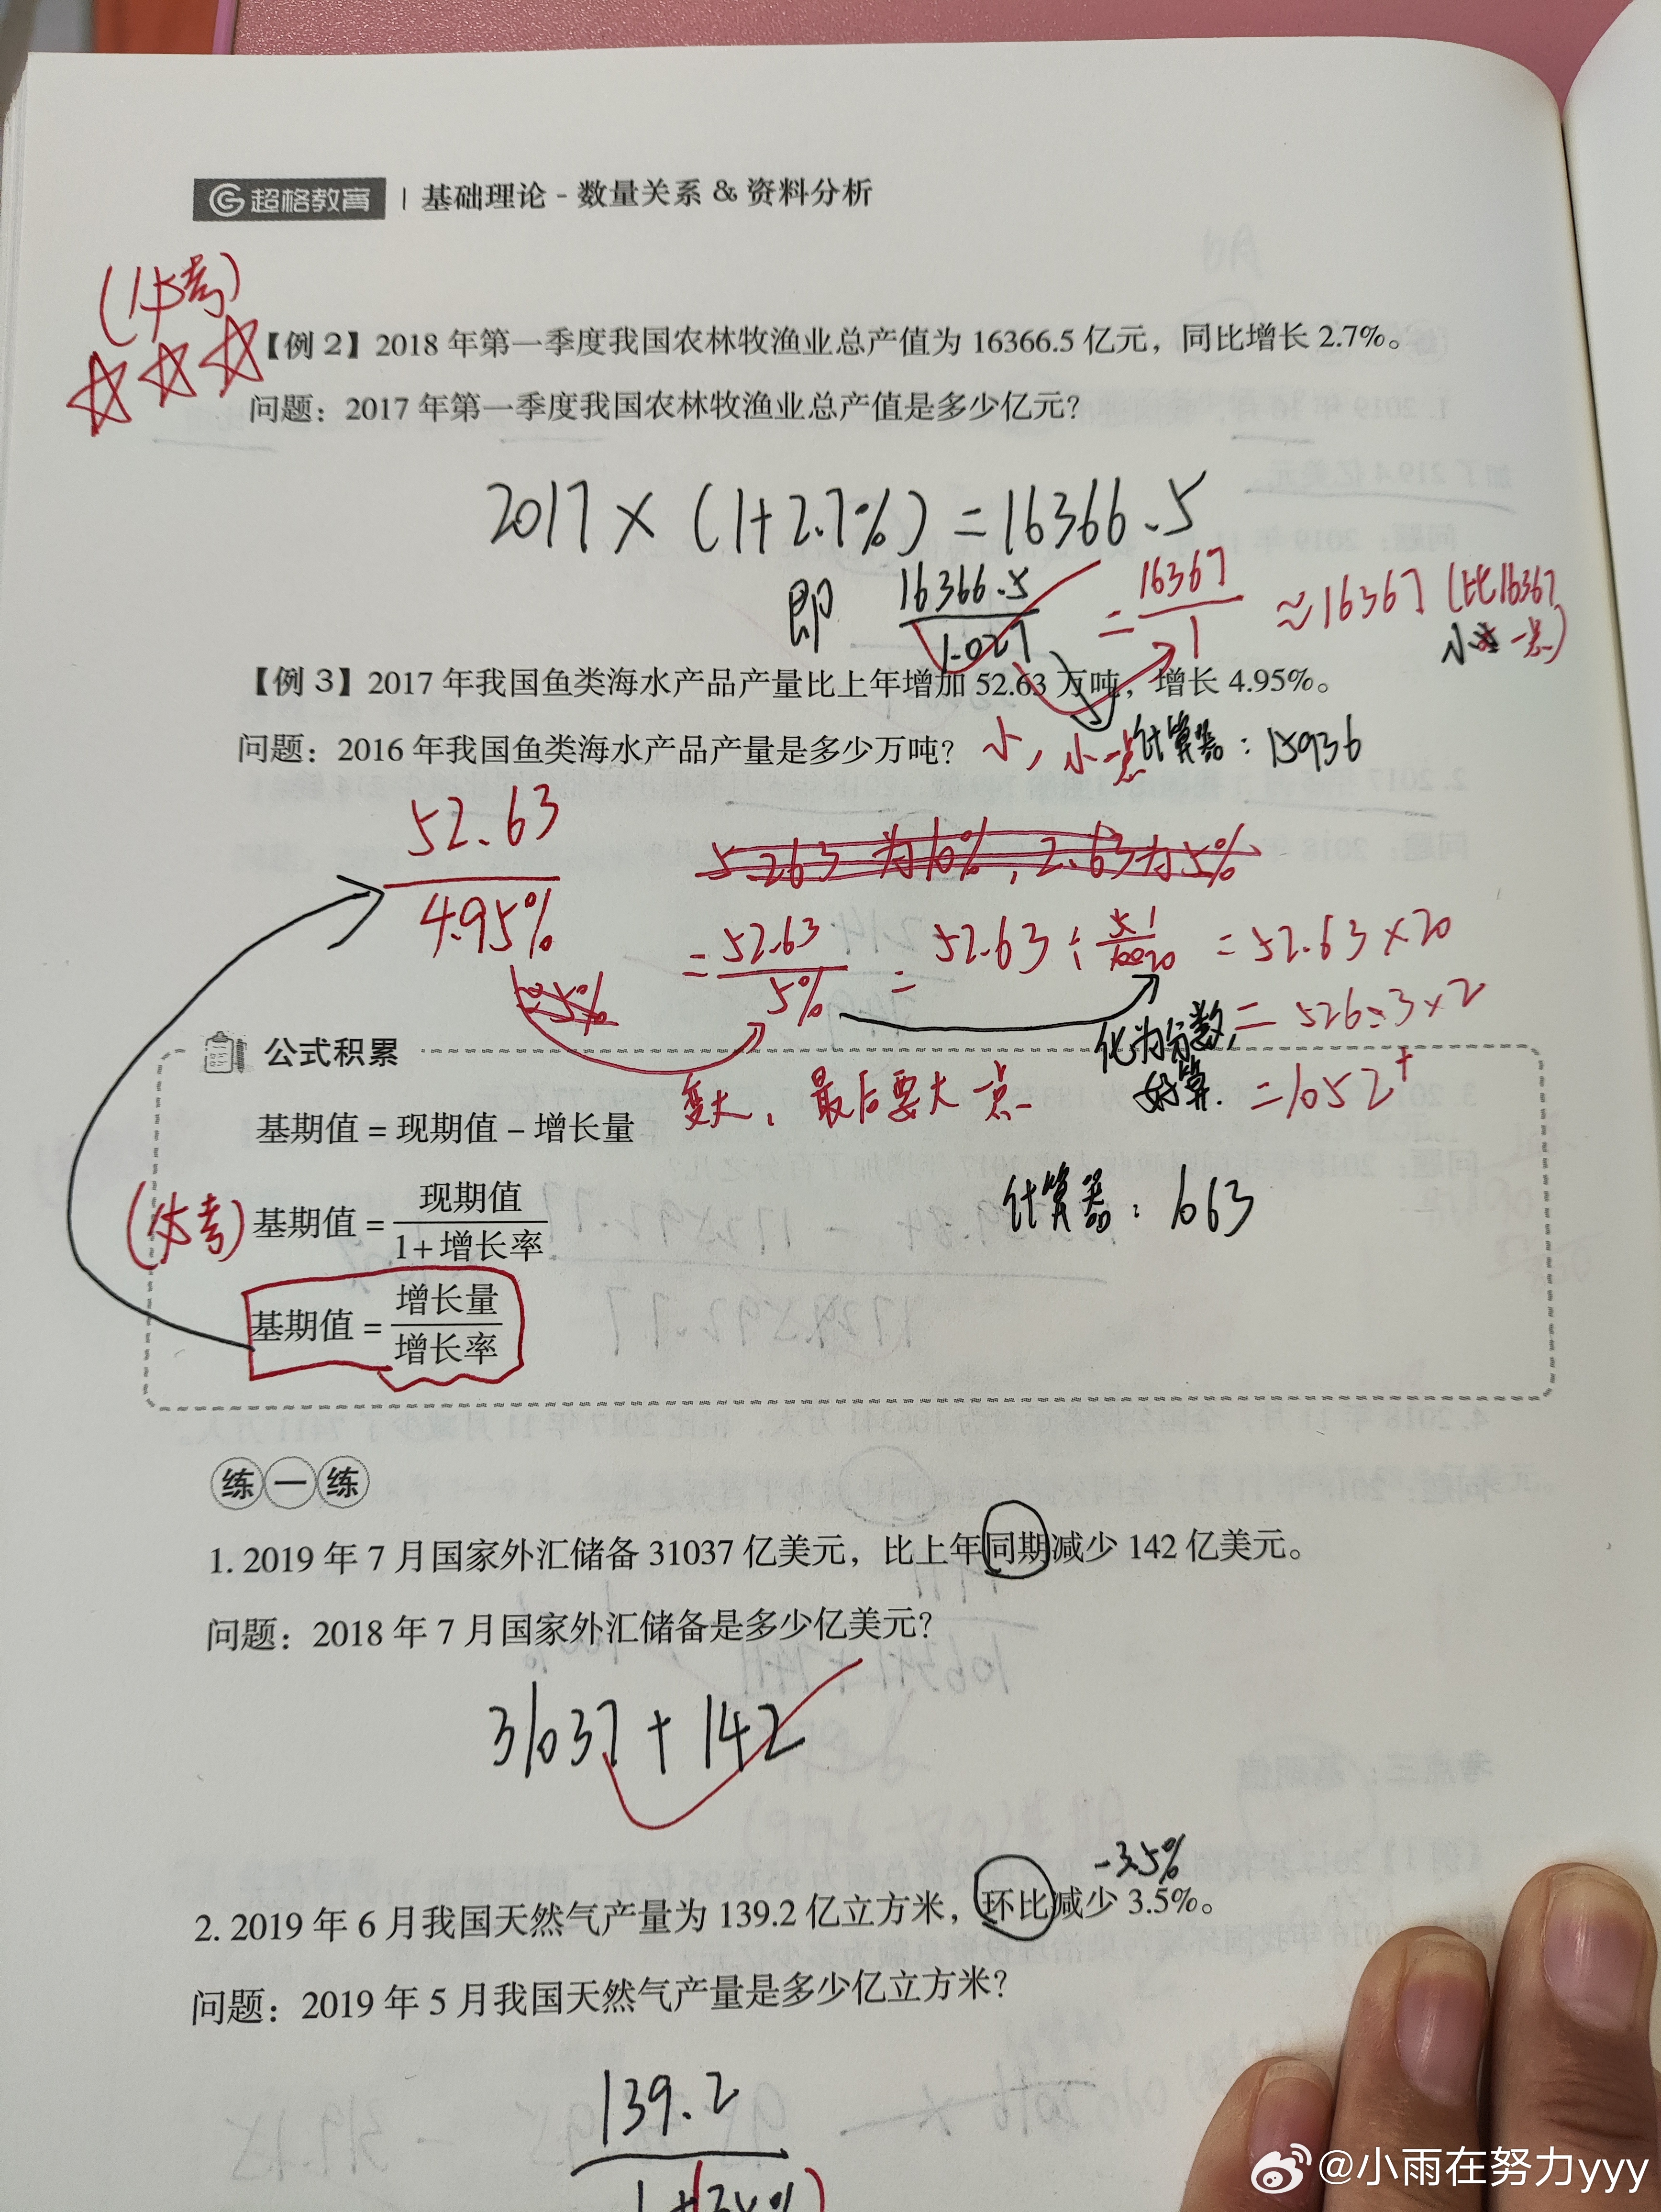 超格教育 | 基础理论 - 数量关系 & 资料分析
(必考)
【例 2】2018 年第一季度我国农林牧渔业总产值为 16366.5 亿元，同比增长 2.7%。
问题：2017 年第一季度我国农林牧渔业总产值是多少亿元？
2017 × (1+2.7%) = 16366.5
即 16366.5/1.027 = 16367/1 ≈ 16367 (比16367
小一点)
【例 3】2017 年我国鱼类海水产品产量比上年增加 52.63 万吨，增长 4.95%。
问题：2016 年我国鱼类海水产品产量是多少万吨？
小，小一点
计算器：15936
52.63/4.95%
5.263 为10%，2.63为5%
= 52.63/5% = 52.63 ÷ 5/100 1/20 = 52.63×20
化为分数， = 526.3×2
好算. = 1052+
变大，最后要大一点
公式积累
基期值 = 现期值 − 增长量
计算器：1063
(必考) 基期值 = 现期值/1+增长率
基期值 = 增长量/增长率
练一练
1. 2019 年 7 月国家外汇储备 31037 亿美元，比上年同期减少 142 亿美元。
问题：2018 年 7 月国家外汇储备是多少亿美元？
31037 + 142
-3.5%
2. 2019 年 6 月我国天然气产量为 139.2 亿立方米，环比减少 3.5%。
问题：2019 年 5 月我国天然气产量是多少亿立方米？
139.2
@小雨在努力yyy